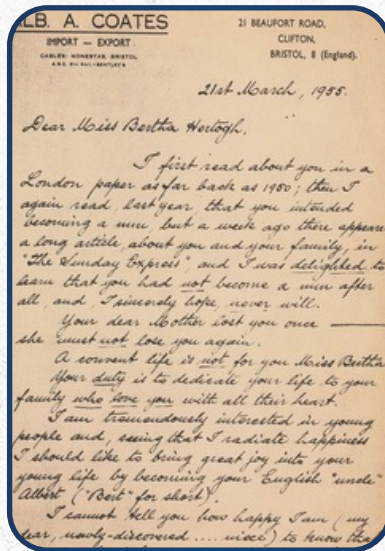 LB. A. COATES
IMPORT — EXPORT
CABLES: HONESTAS, BRISTOL
21 BEAUFORT ROAD,
CLIFTON,
BRISTOL, 8 (England).
21st March, 1955.
Dear Miss Bertha Hertogh,
I first read about you in a
London paper as far back as 1950; then I
again read, last year, that you intended
becoming a nun, but a week ago there appeare
a long article, about you and your family, in
"The Sunday Express", and I was delighted to
learn that you had not become a nun after
all, and, I sincerely hope, never will.
Your dear Mother lost you once —
she must not lose you again.
A convent life is not for you Miss Bertha
Your duty is to dedicate your life to your
family who love you with all their heart.
I am tremendously interested in young
people and, seeing that I radiate happiness
I should like to bring great joy into your
young life by becoming your English "uncle"
Albert ("Bert" for short).
I cannot tell you how happy I am (my
dear, newly-discovered .... niece) to know tha